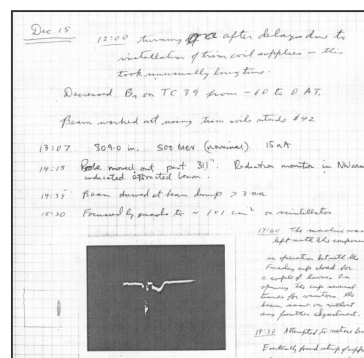 Dec. 15
12:00 turning on after delays due to
installation of trim coil supplies – this
took unusually long time.
Decreased Br on TC 39 from -60 to 0 AT.
Beam worked out using trim coils #42
13:07 309.0 in. 500 MeV (nominal) 15 nA
14:15 Probe moved out past 311". Radiation monitor in
indicated extracted beam.
14:35 Beam at beam dump > 3 na
15:20 Focussed by quads to ~ 1x1 cm² on scintillator
17:40 The machine was
left with this component
in operation but with the
Faraday cup closed for
a couple of hours. On
opening the cup several
times for visitors, the
beam came on without
any further adjustment.
19:30 Attempted to restore
Eventually found